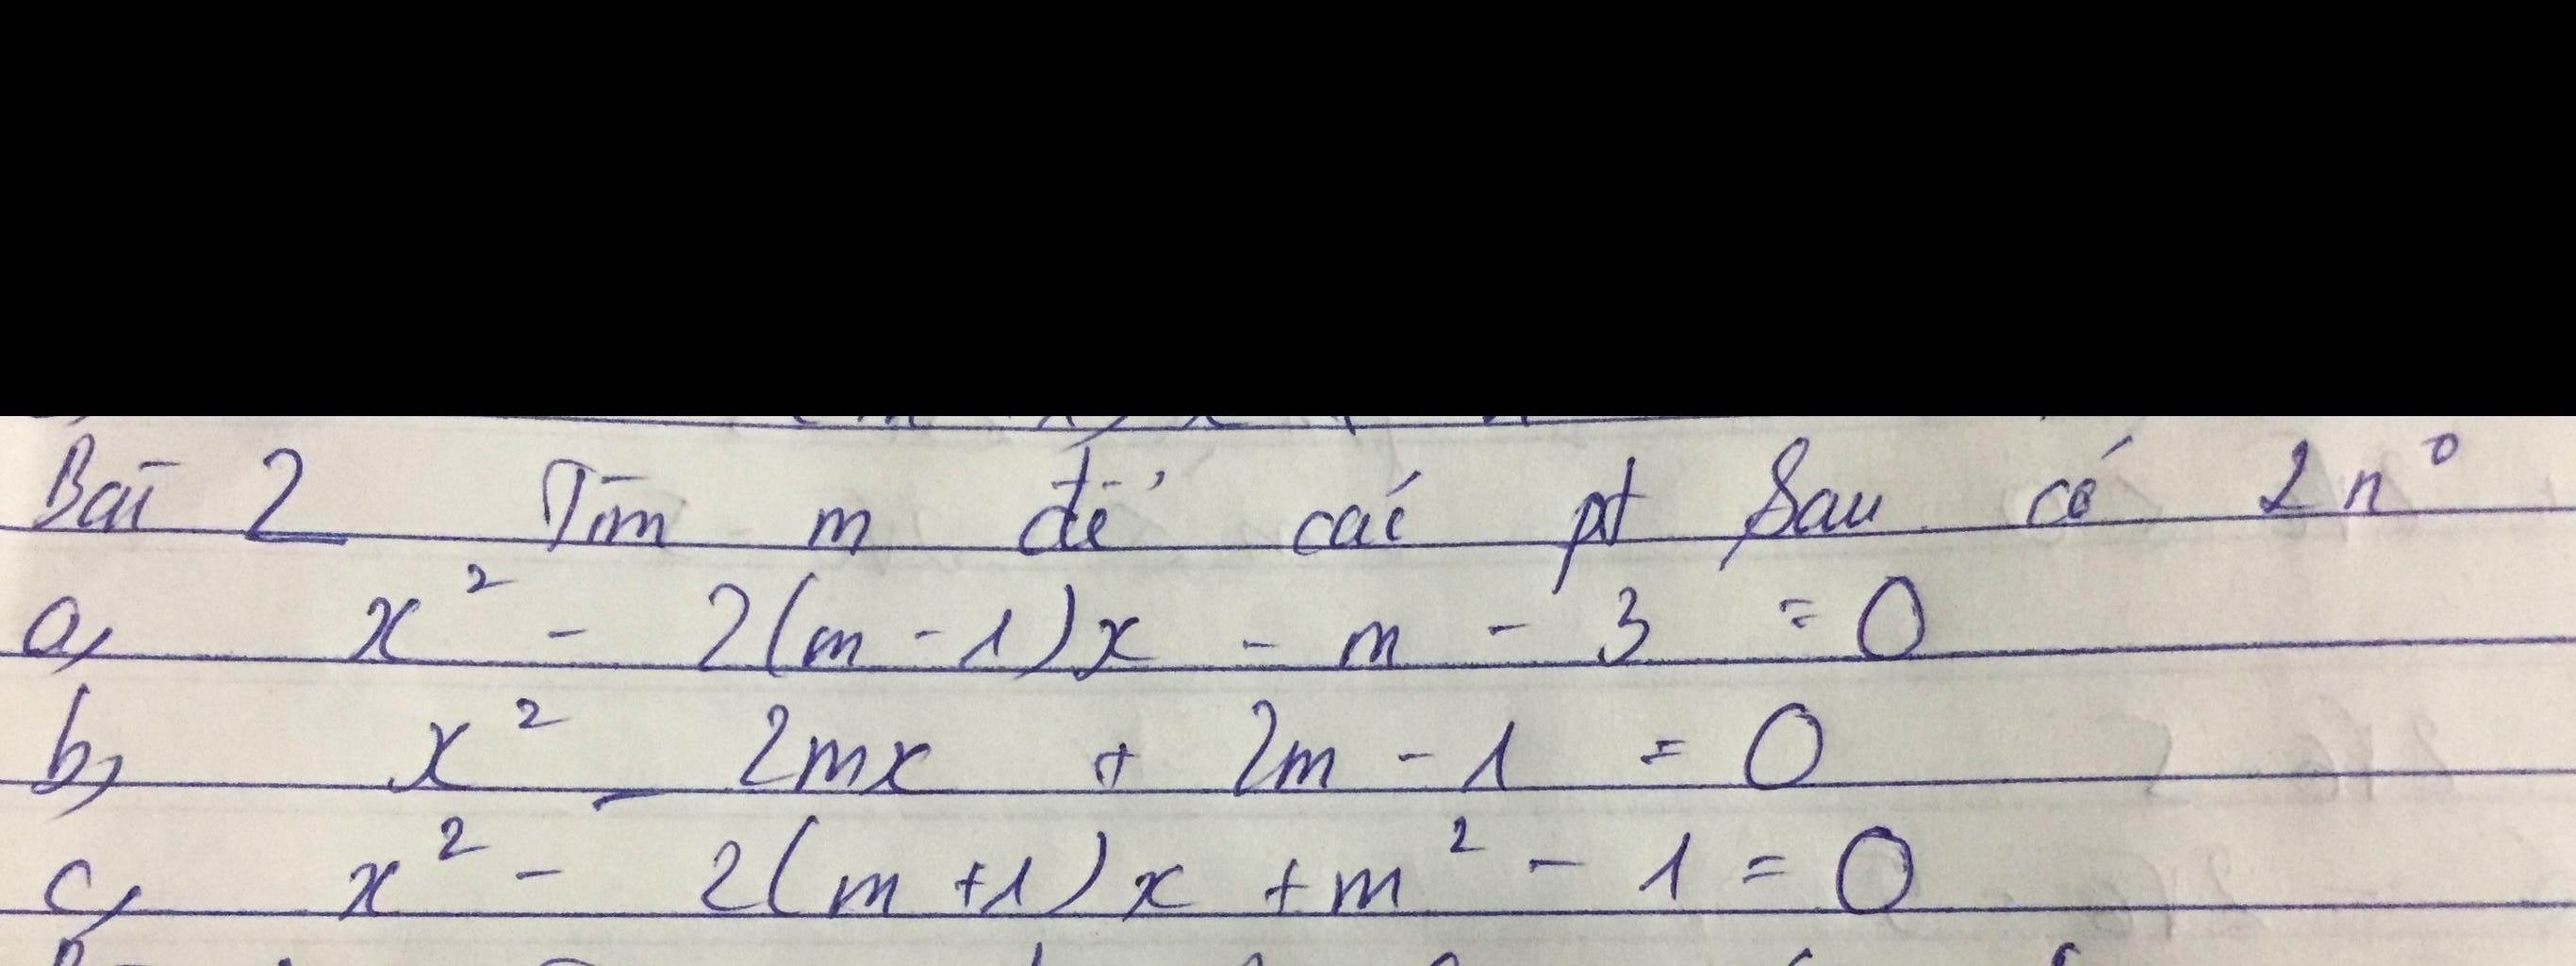 Bài 2 Tìm m để các pt sau có 2 n°
a, x² - 2(m - 1)x - m - 3 = 0
b, x² - 2mx + 2m - 1 = 0
c, x² - 2(m + 1)x + m² - 1 = 0